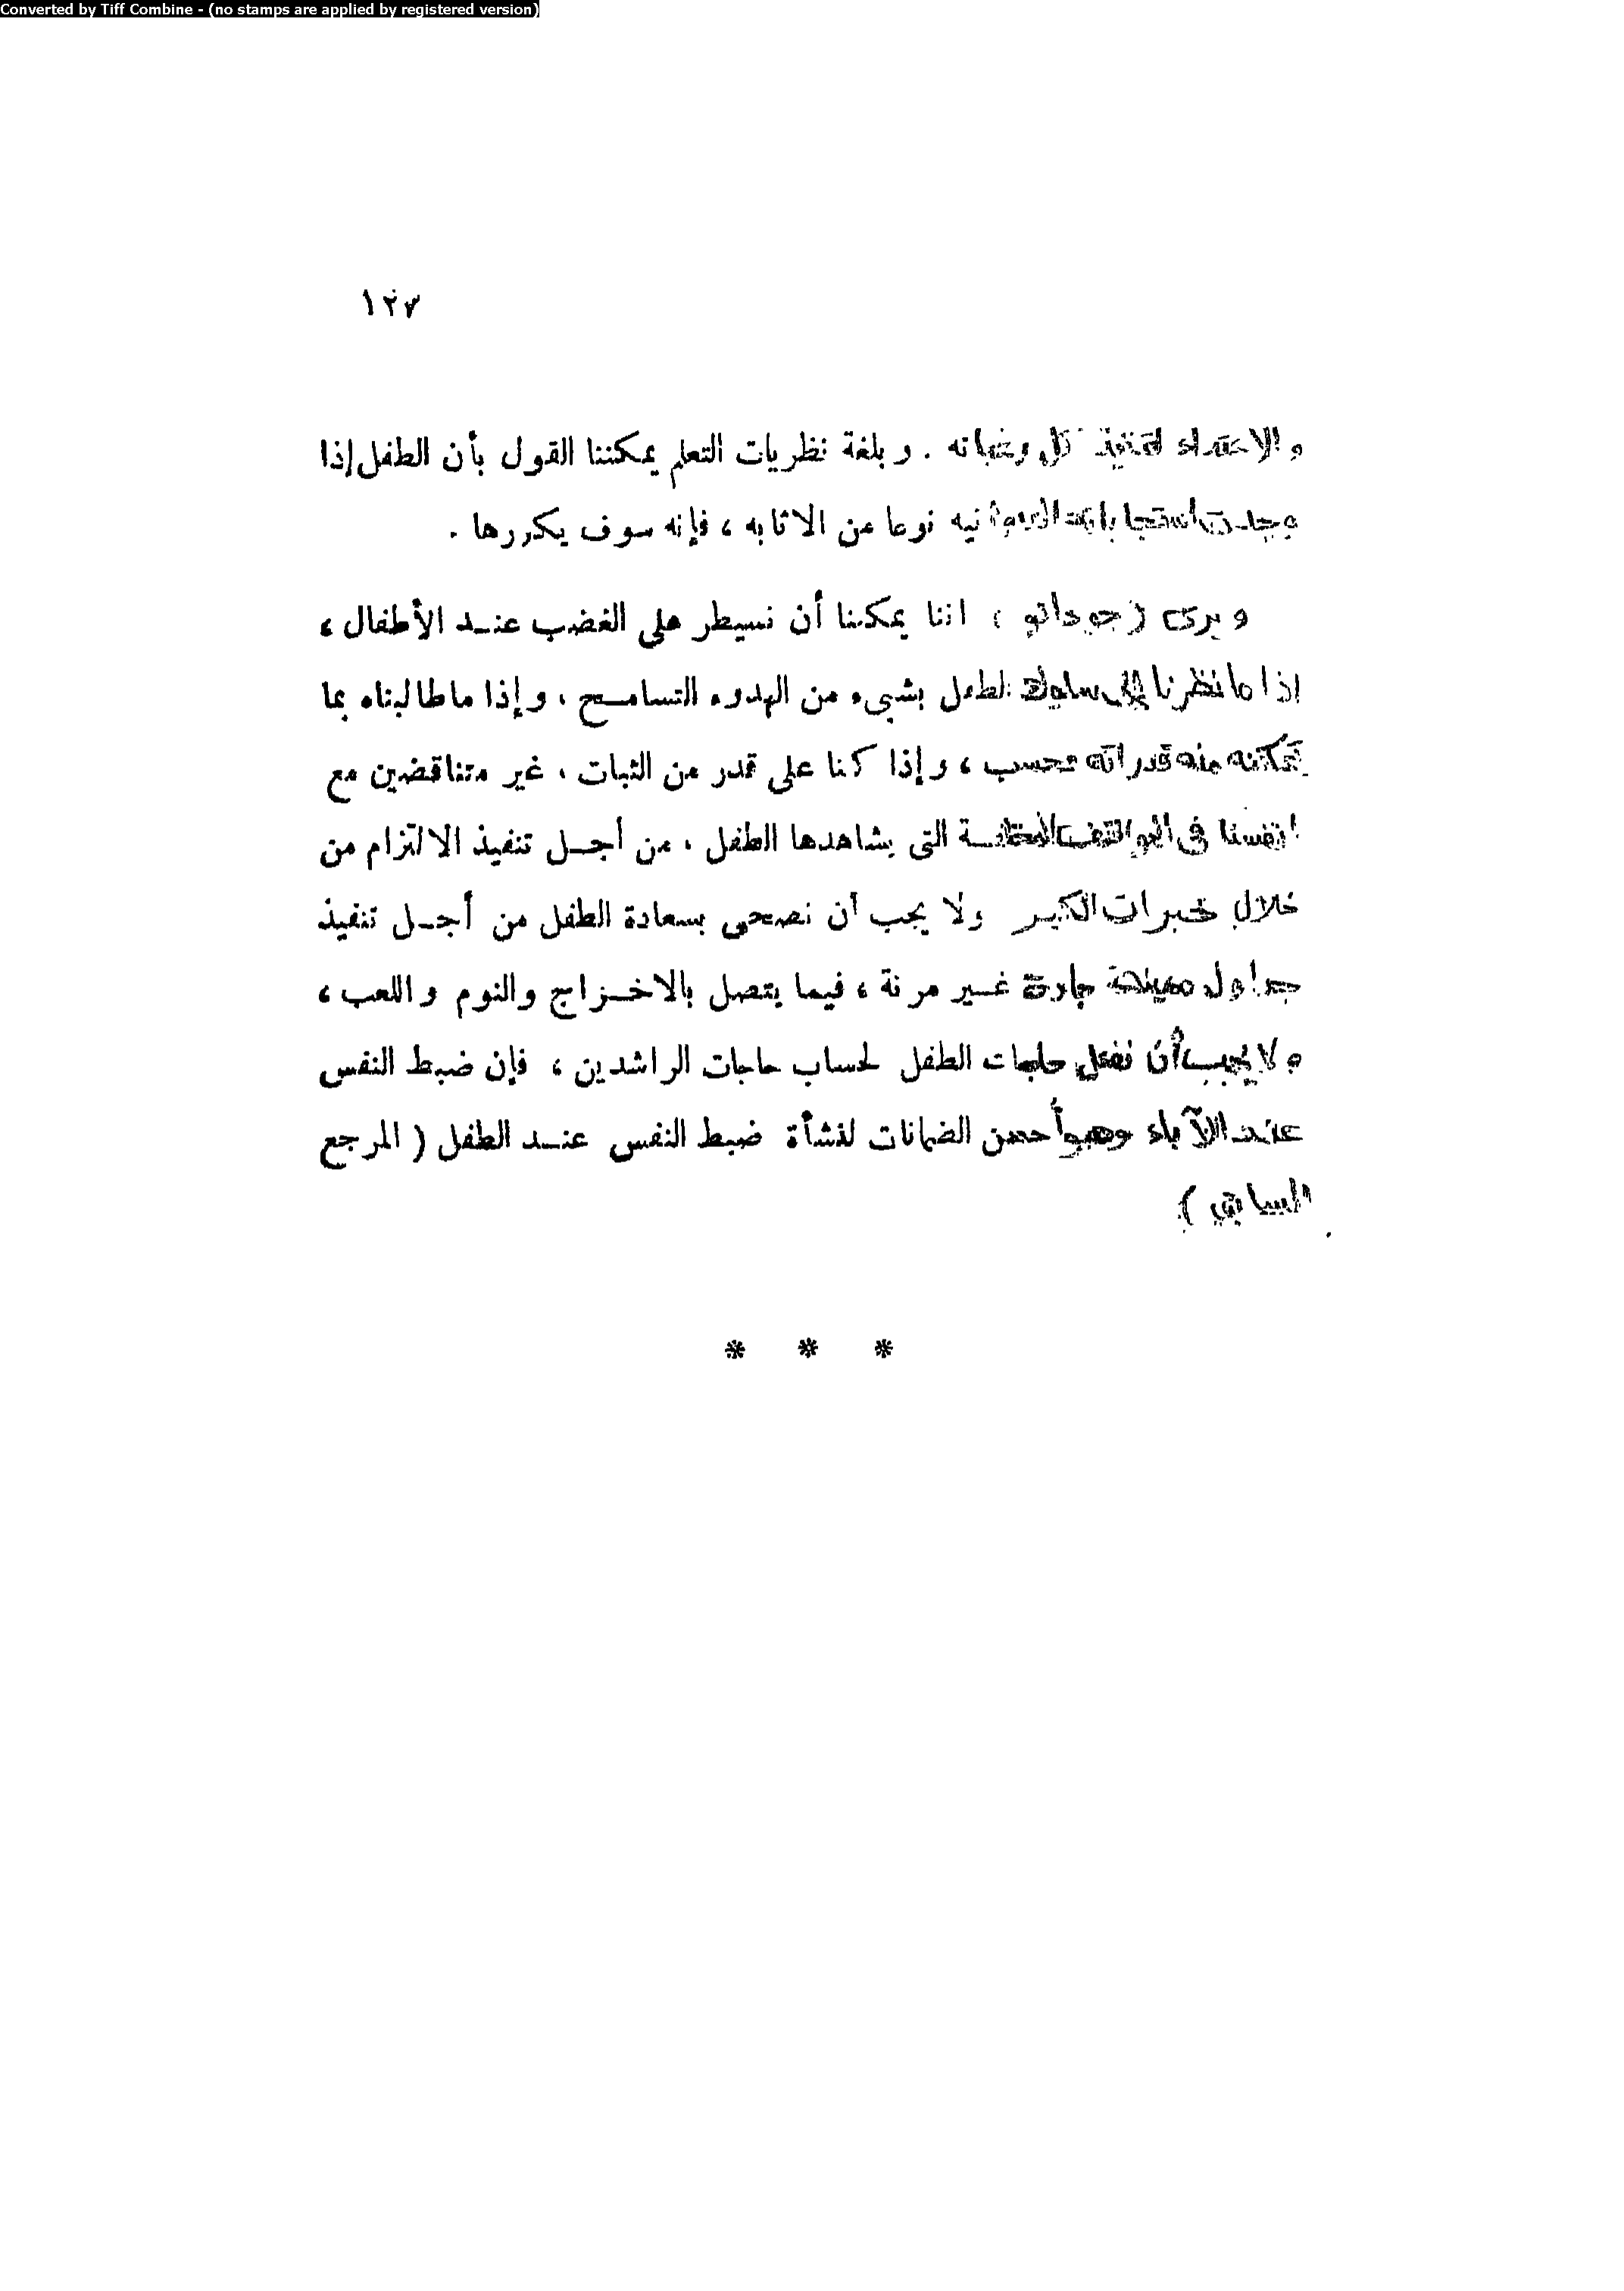 Converted by Tiff Combine - (no stamps are applied by registered version)
١٢٧
والاعتداء لتنفيذ كل رغباته . وبلغة نظريات التعلم يمكننا القول بأن الطفل إذا
وجدت استجاباته العدوانيه نوعا من الاثابه ، فإنه سوف يكررها .
ويرى ( ) اننا يمكننا أن نسيطر على الغضب عند الأطفال ،
إذا ما نظرنا إلى سلوك الطفل بشىء من الهدوء التسامح ، وإذا ما طالبناه بما
تمكنه منه قدراته فحسب ، وإذا كنا على قدر من الثبات ، غير متناقضين مع
انفسنا فى المواقف المختلفة التى يشاهدها الطفل ، من أجل تنفيذ الالتزام من
خلال خبرات الكبير ولا يجب أن نضحى بسعادة الطفل من أجل تنفيذ
جداول معينة جامدة غير مرنة ، فيما يتصل بالاخراج والنوم واللعب ،
ولا يجب أن نغفل حاجات الطفل لحساب حاجات الراشدين ، فإن ضبط النفس
عند الآباء وهو أحسن الضمانات لنشأة ضبط النفس عند الطفل ( المرجع
السابق )
* * *